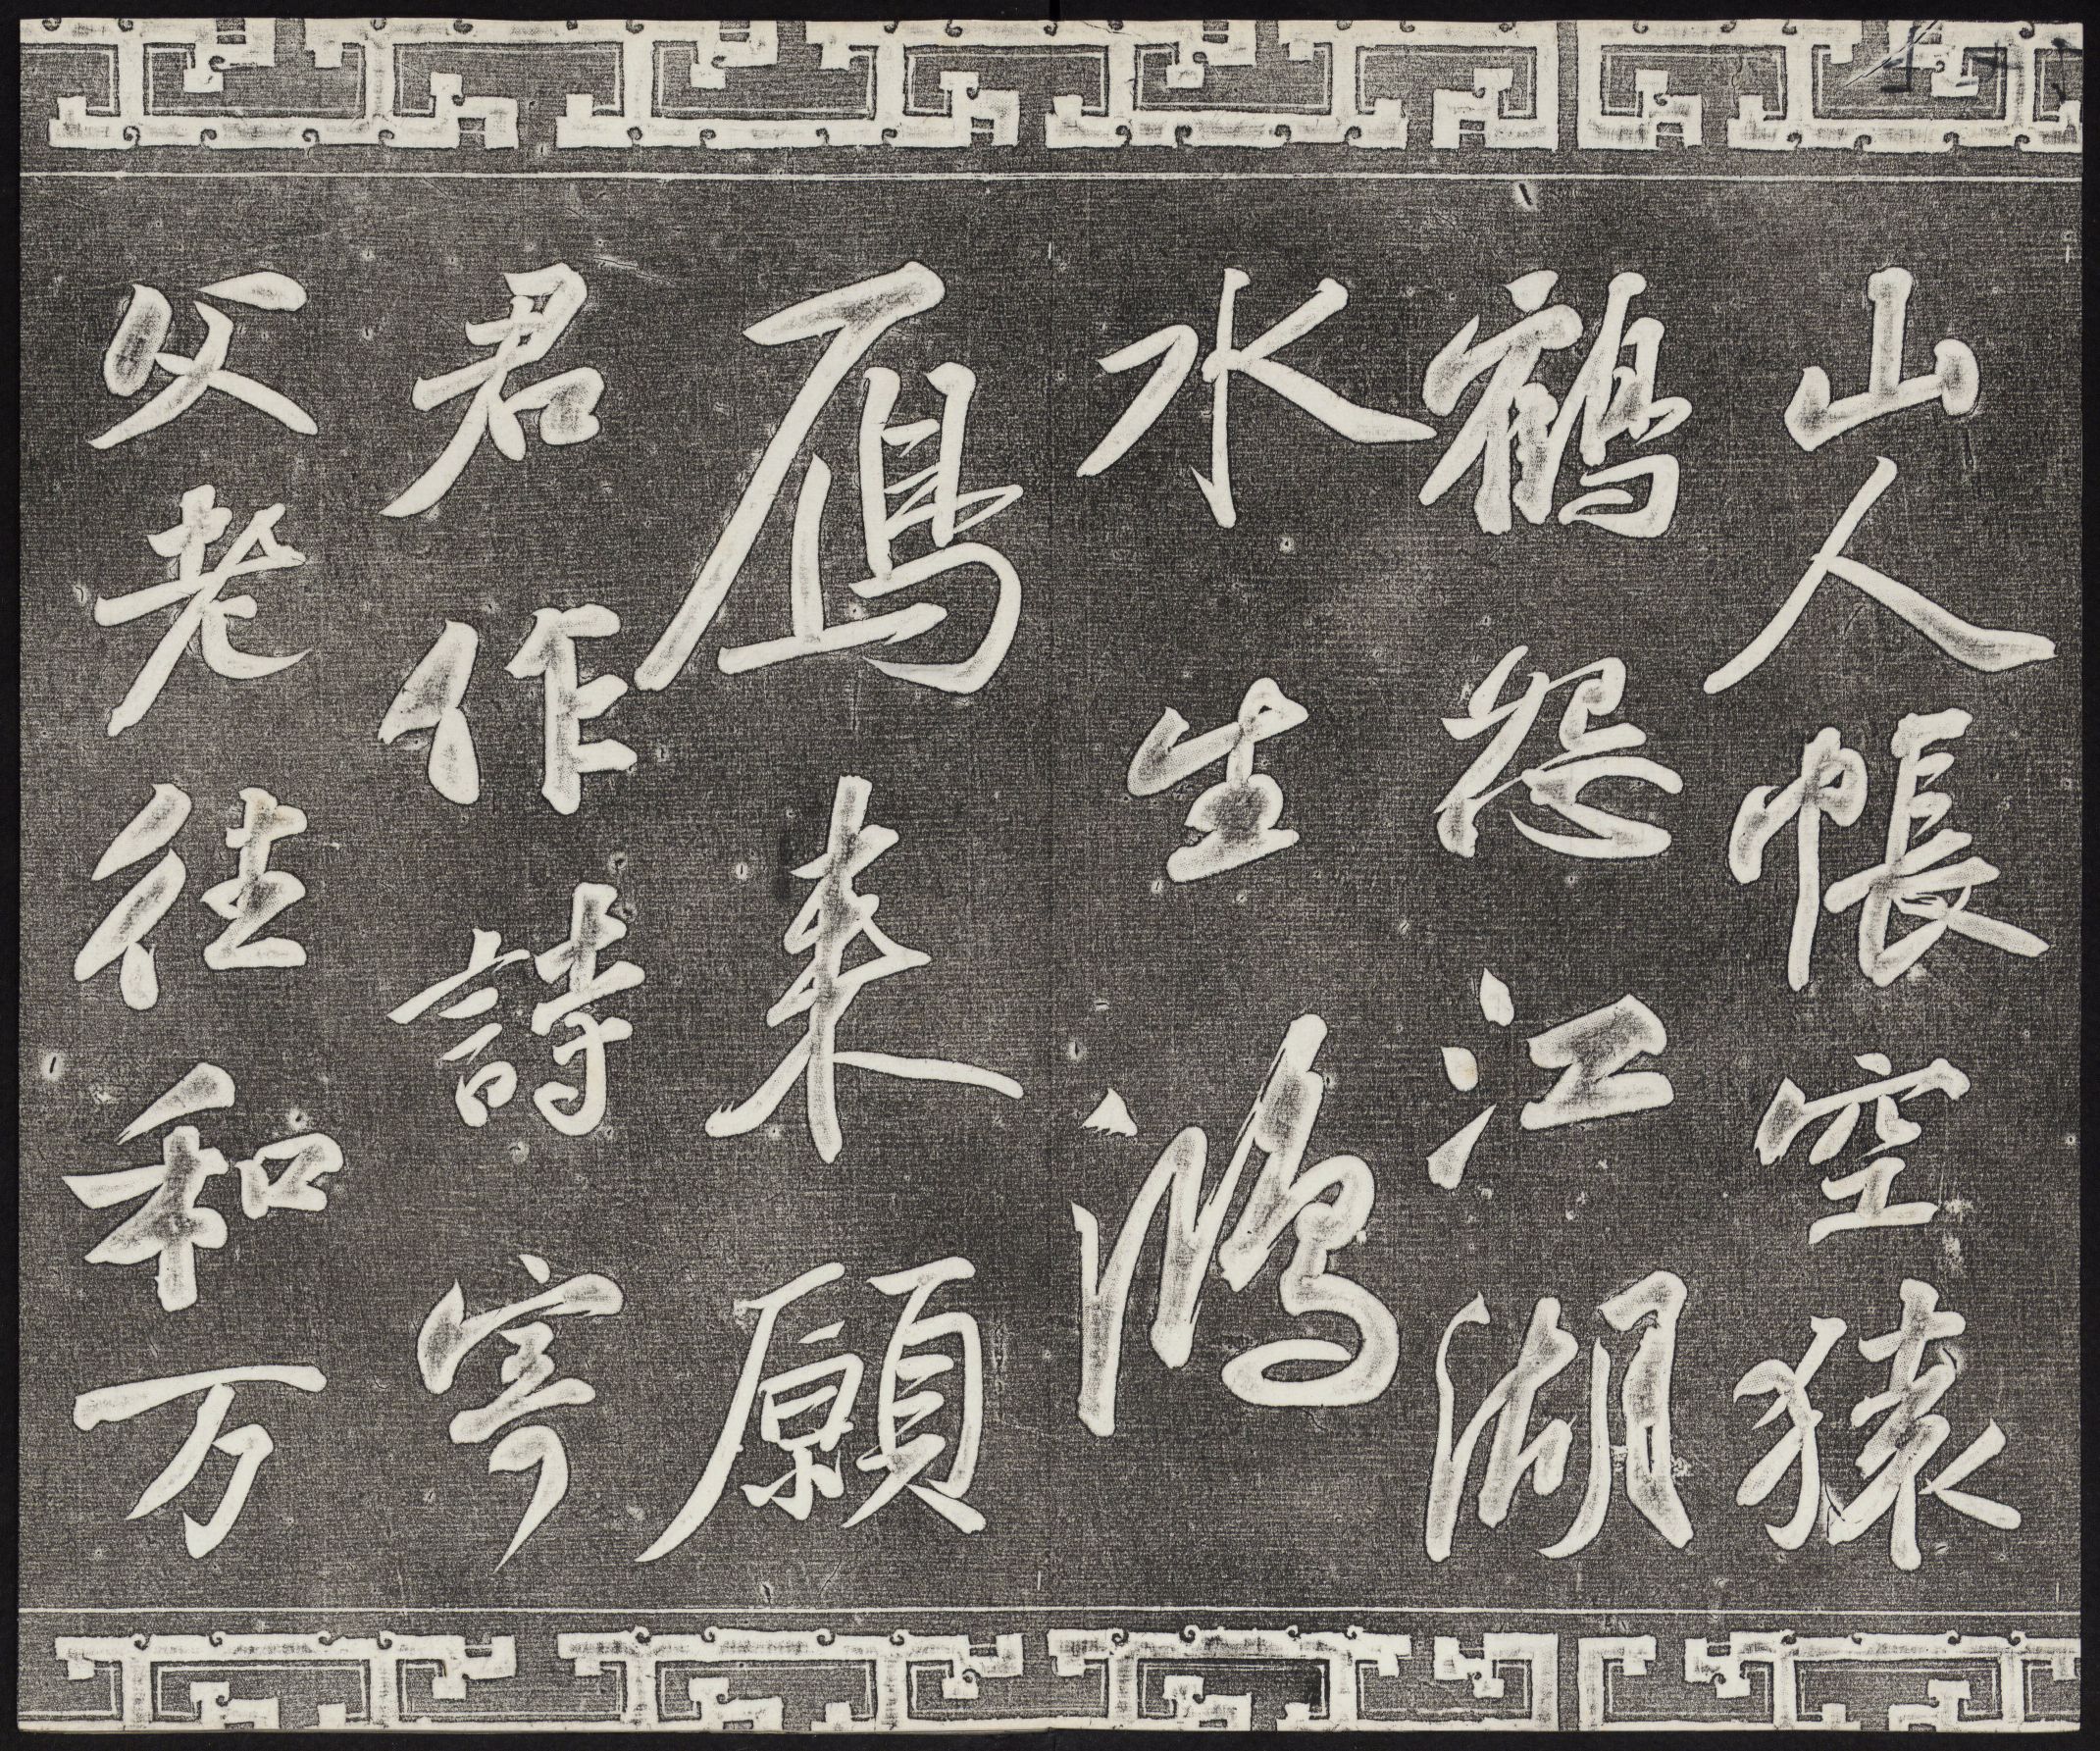 山人帳空猿
鶴怨江湖
水生鴻
鴈来願
君作詩寄
父老往和万